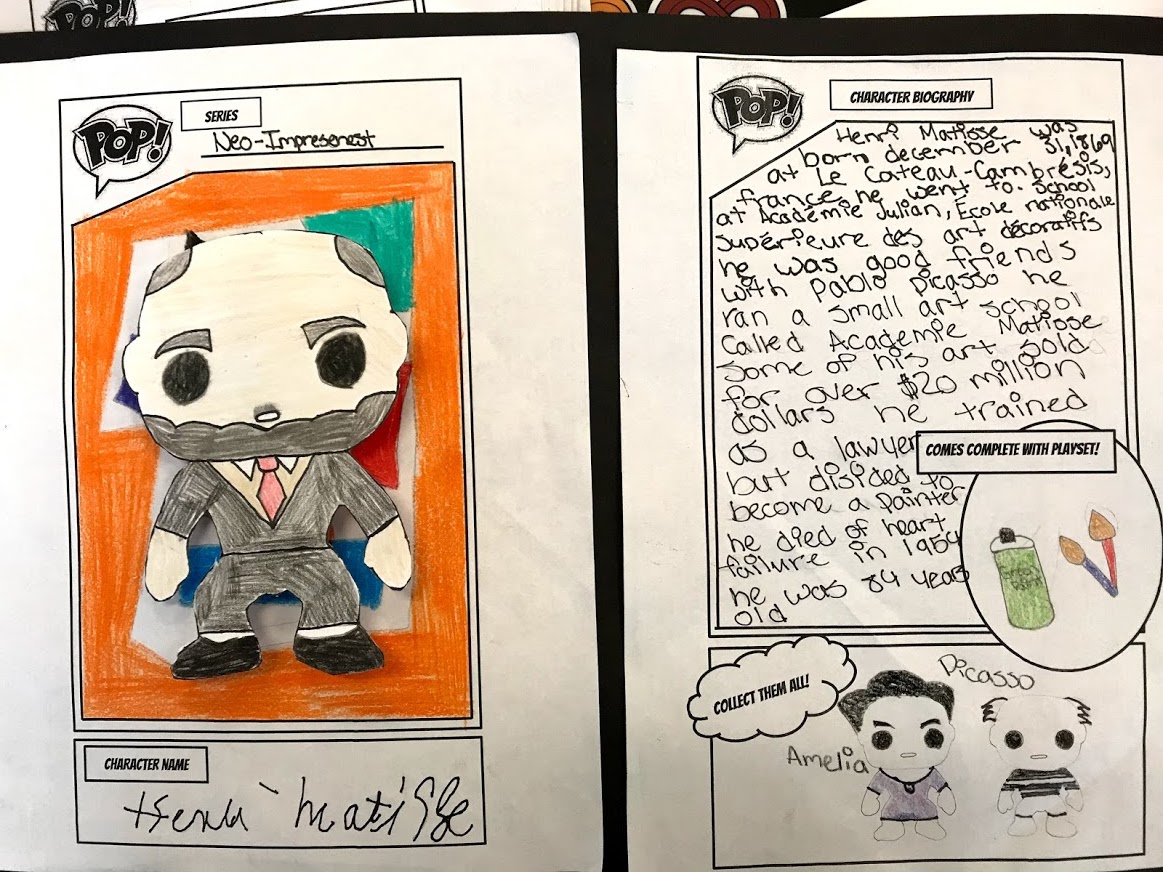 POP!
SERIES
Neo-Impresenest
CHARACTER NAME
Henri Matisse
POP!
CHARACTER BIOGRAPHY
Henri Matisse was
born december 31, 1869
at Le Cateau-Cambrésis,
france, he went to school
at Académie Julian, École nationale
supérieure des art décoratifs
he was good friends
with pablo picasso he
ran a small art school
called Academie Matisse
some of his art sold
for over $20 million
dollars he trained
as a lawyer
but disided to
become a painter
he died of heart
failure in 1954
he was 84 years
old
COMES COMPLETE WITH PLAYSET!
COLLECT THEM ALL!
Picasso
Amelia